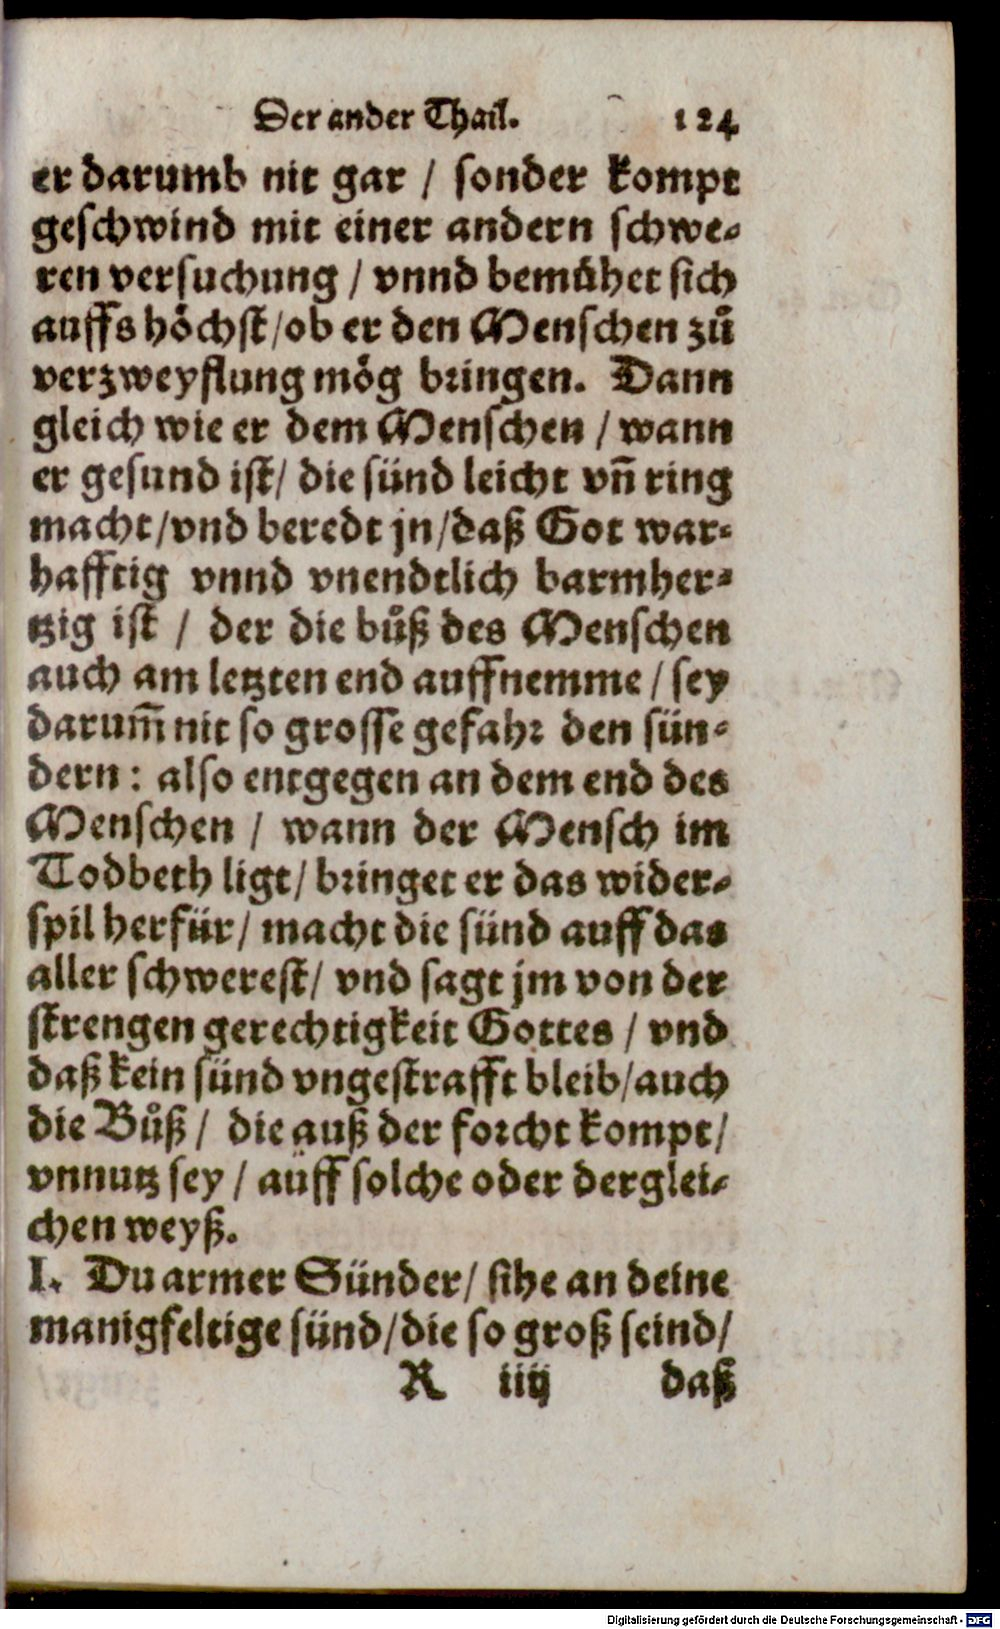 Der ander Thail. 124
er darumb nit gar / sonder kompt
geschwind mit einer andern schwe-
ren versuchung / vnnd bemühet sich
auffs höchst/ob er den Menschen zů
verzweyflung mög bringen. Dann
gleich wie er dem Menschen / wann
er gesund ist/ die sünd leicht vñ ring
macht/vnd beredt jn/daß Got war-
hafftig vnnd vnendtlich barmher-
tzig ist / der die bůß des Menschen
auch am letzten end auffnemme / sey
darum̃ nit so grosse gefahr den sün-
dern : also entgegen an dem end des
Menschen / wann der Mensch im
Todbeth ligt/ bringet er das wider-
spil herfür/ macht die sünd auff das
aller schwerest/ vnd sagt jm von der
strengen gerechtigkeit Gottes / vnd
daß kein sünd vngestrafft bleib/auch
die Bůß / die auß der forcht kompt/
vnnutz sey / auff solche oder derglei-
chen weyß.
I. Du armer Sünder/ sihe an deine
manigfeltige sünd/die so groß seind/
R iiij daß
Digitalisierung gefördert durch die Deutsche Forschungsgemeinschaft - DFG